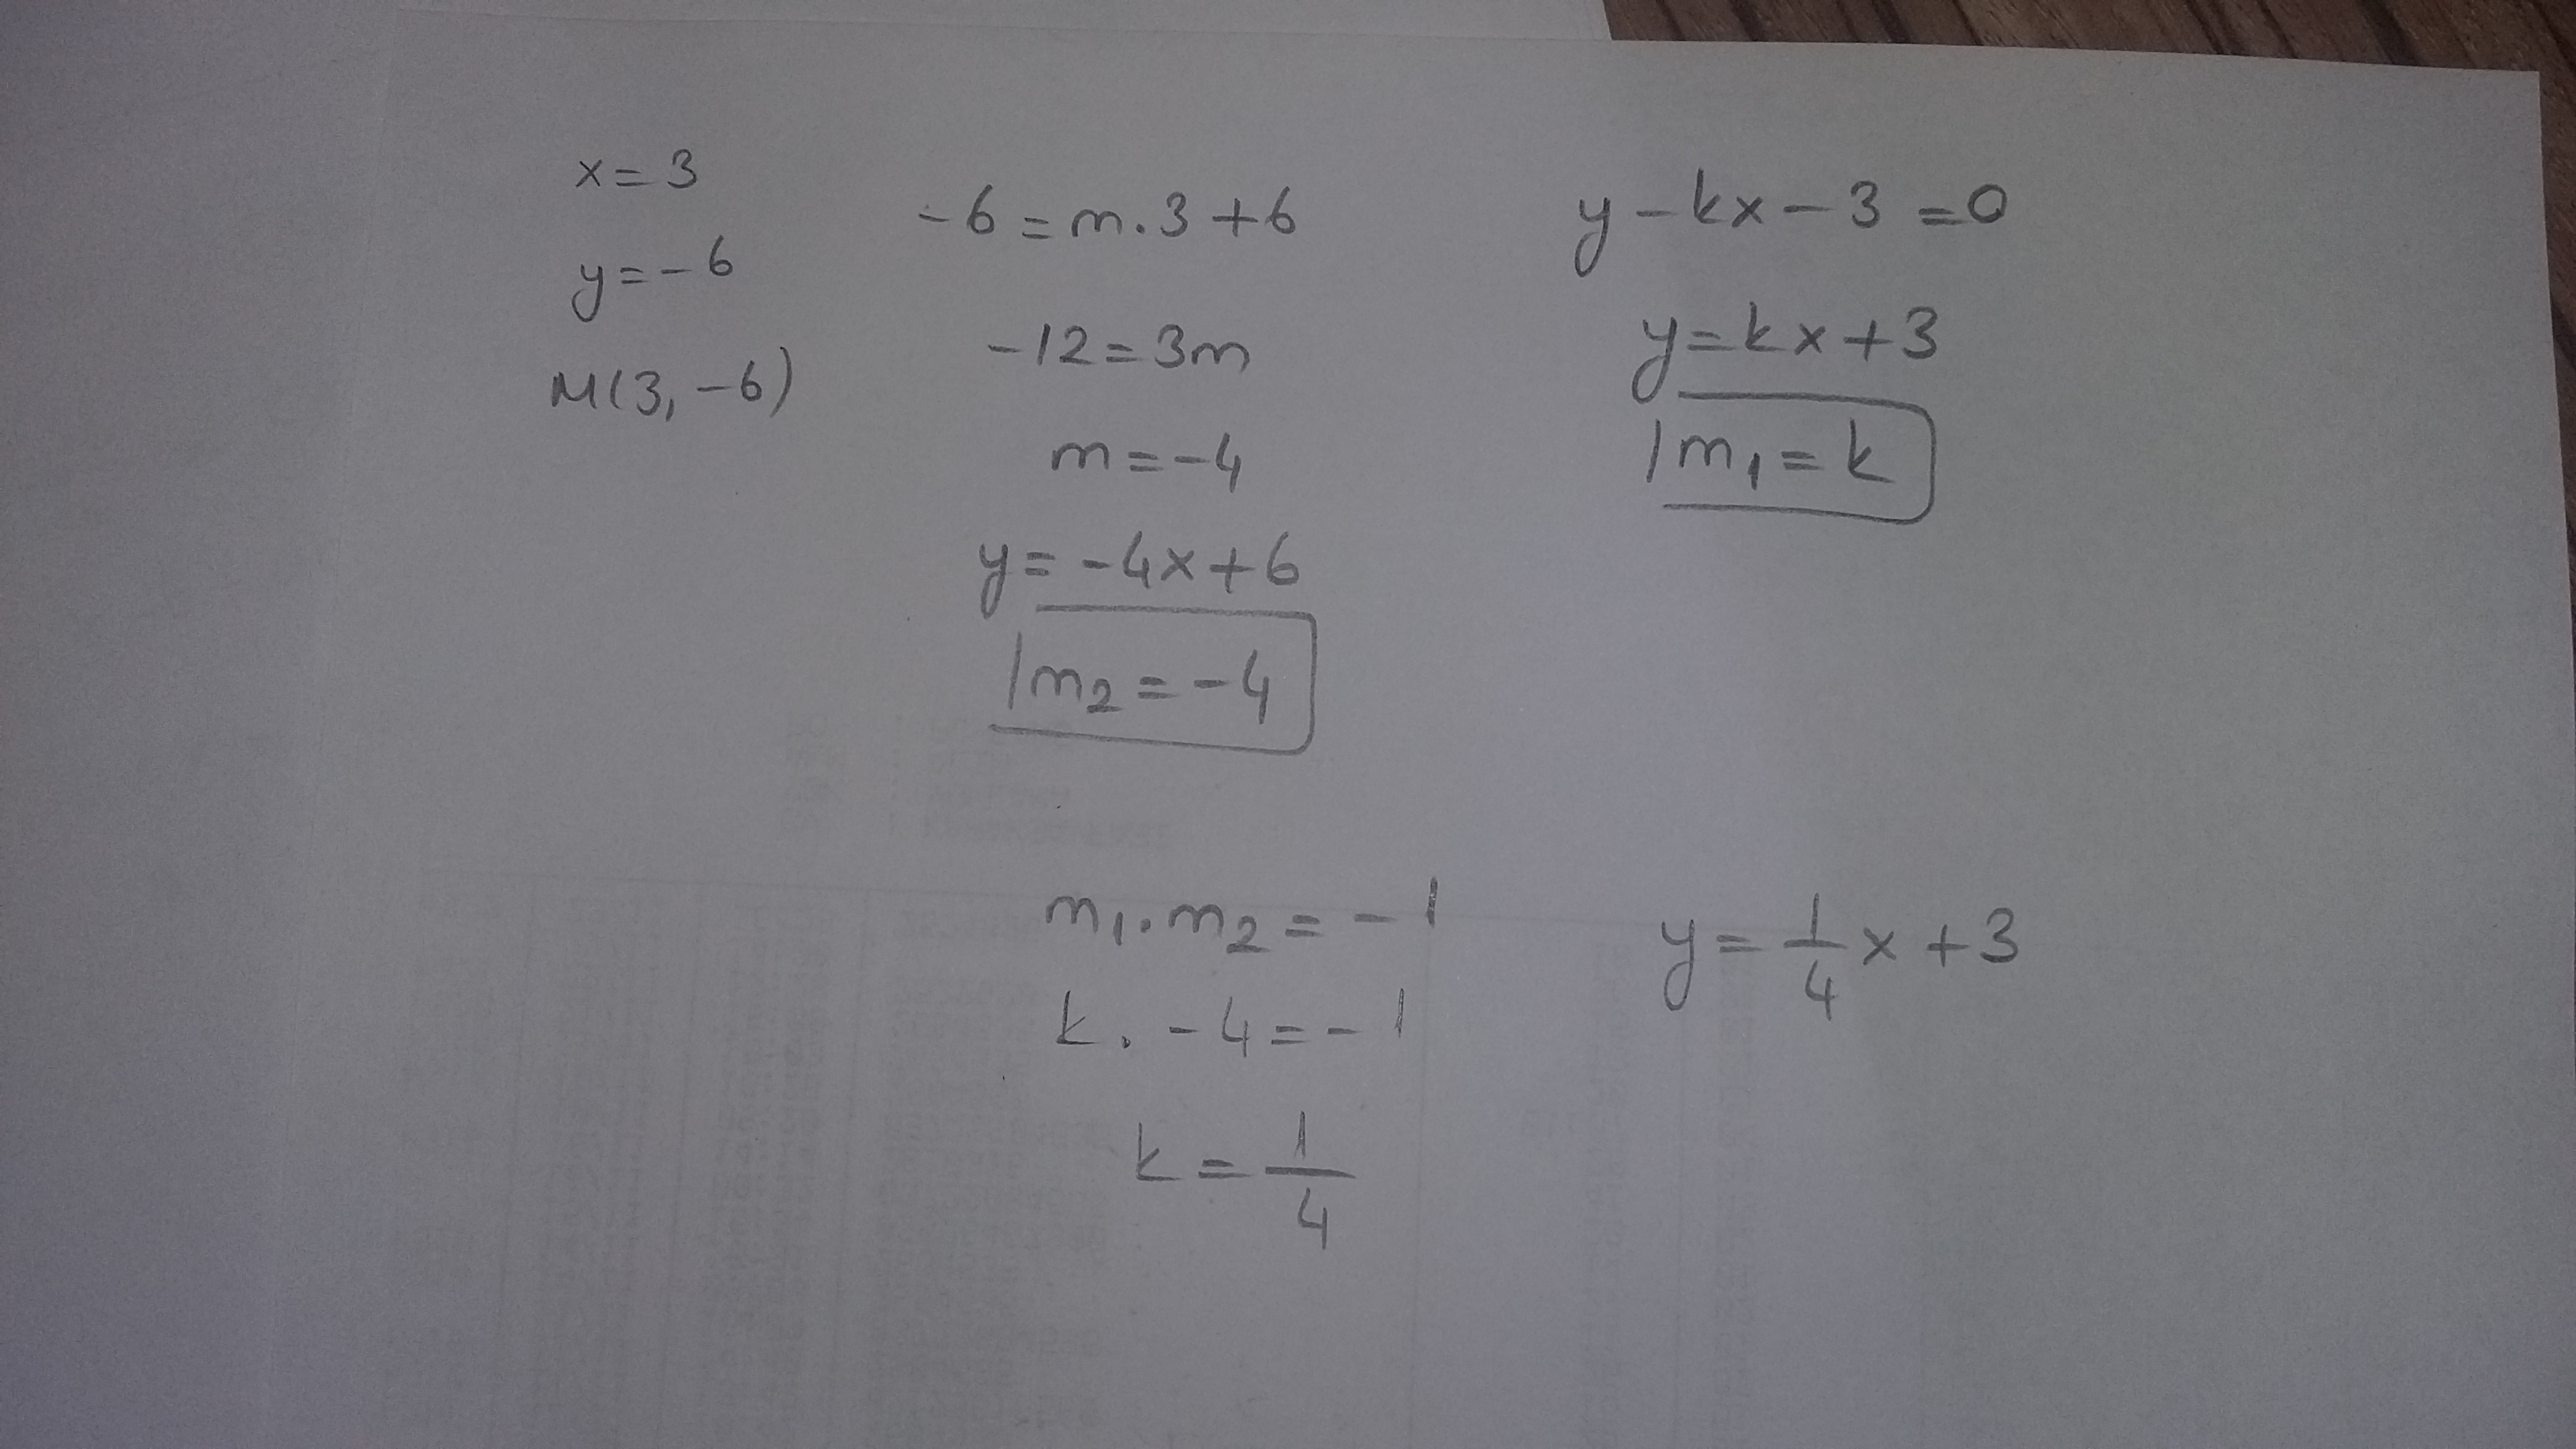 x = 3
y = -6
M(3, -6)
-6 = m.3 + 6
-12 = 3m
m = -4
y = -4x + 6
m₂ = -4
y - kx - 3 = 0
y = kx + 3
m₁ = k
m₁.m₂ = -1
k. -4 = -1
k = 1/4
y = 1/4 x + 3